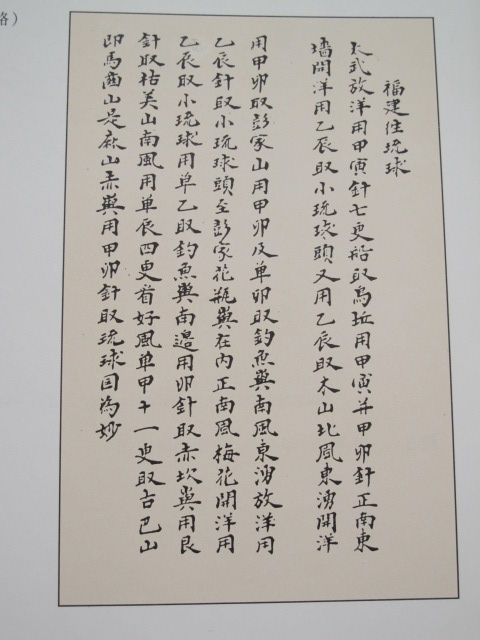 路）
福建往琉球
太武放洋用甲寅針七更船取烏坵用甲寅并甲卯針正南東
墻開洋用乙辰取小琉球頭又用乙辰取木山北風東湧開洋
用甲卯取彭家山用甲卯及单卯取釣魚嶼南風東湧放洋用
乙辰針取小琉球頭至彭家花瓶嶼在内正南風梅花開洋用
乙辰取小琉球用单乙取釣魚嶼南邉用卯針取赤坎嶼用艮
針取枯美山南風用单辰四更看好風单甲十一更取古巴山
即馬齒山是麻山赤嶼用甲卯針取琉球国為妙